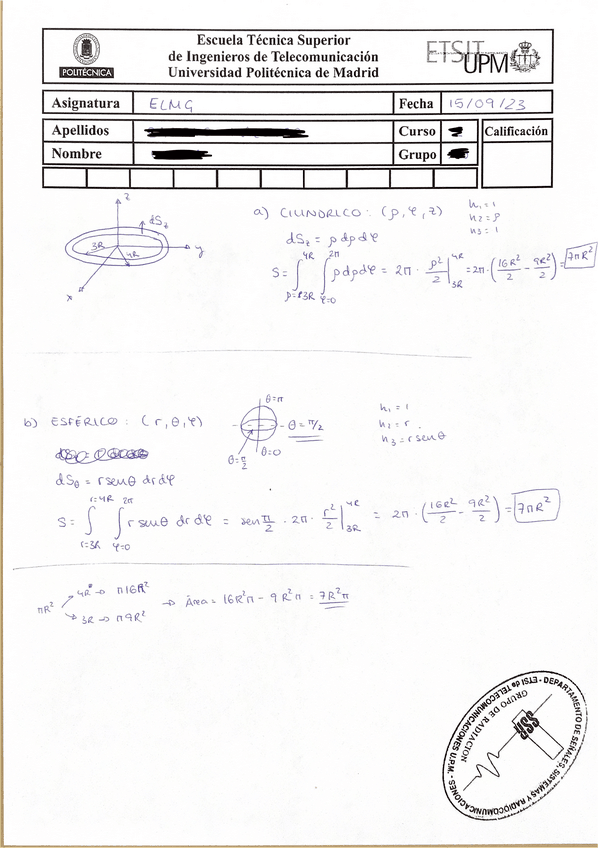 Escuela Técnica Superior
de Ingenieros de Telecomunicación
Universidad Politécnica de Madrid
POLITÉCNICA
ETSIT UPM
Asignatura ELMG Fecha 15/09/23
Apellidos Curso Calificación
Nombre Grupo
z
dS_z
3R 4R y
x
a) CILINDRICO : (ρ, φ, z) h₁ = 1
h₂ = ρ
h₃ = 1
dS_z = ρ dρ dφ
S = ∫_{ρ=3R}^{4R} ∫_{φ=0}^{2π} ρ dρ dφ = 2π · ρ²/2 |_{3R}^{4R} = 2π · (16R²/2 - 9R²/2) = 7πR²
b) ESFÉRICO : (r, θ, φ)
θ=π
θ = π/2
θ=π/2 θ=0
h₁ = 1
h₂ = r
h₃ = r senθ
dS_θ = r senθ dr dφ
S = ∫_{r=3R}^{r=4R} ∫_{φ=0}^{2π} r senθ dr dφ = sen π/2 · 2π · r²/2 |_{3R}^{4R} = 2π · (16R²/2 - 9R²/2) = 7πR²
πR² 4R → π16R²
3R → π9R²
→ Área = 16R²π - 9R²π = 7R²π
DEPARTAMENTO DE SEÑALES, SISTEMAS Y RADIOCOMUNICACIONES - ETSI de TELECOMUNICACIONES U.P.M. -
GRUPO DE RADIACION
SSR